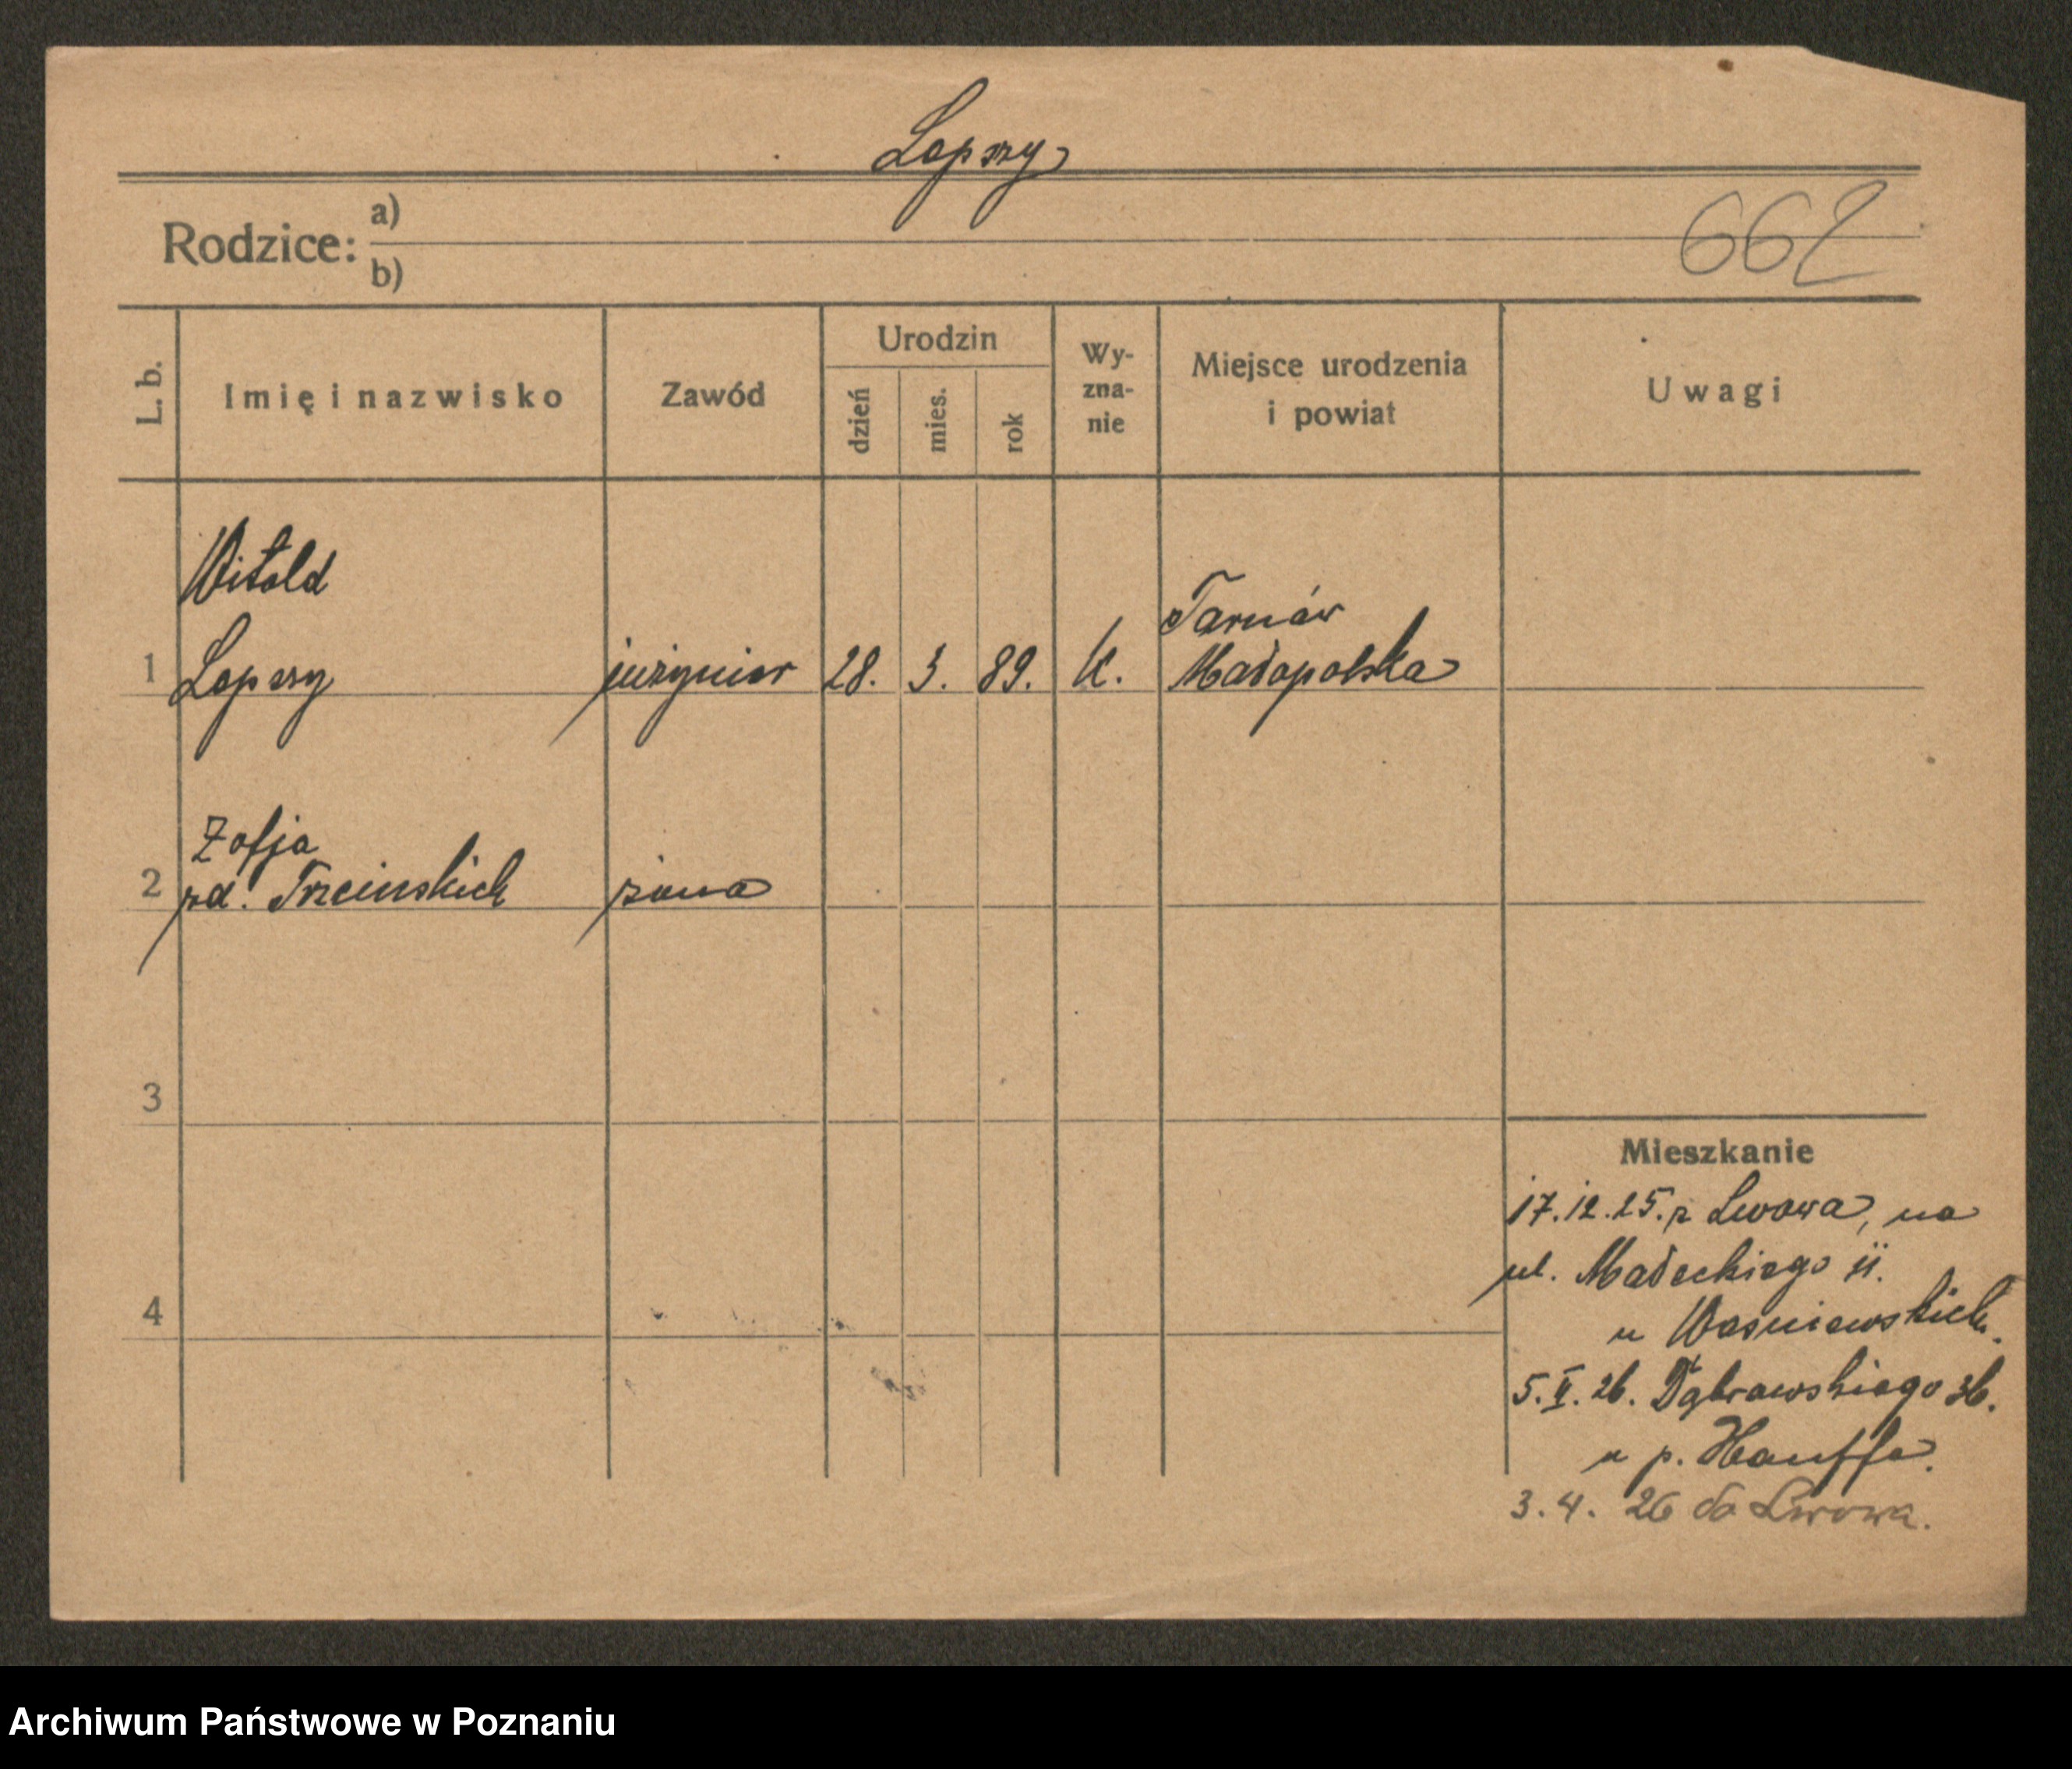 Lepszy
662
Rodzice: a)
b)
L. b. Imię i nazwisko Zawód Urodzin dzień mies. rok Wy-zna-nie Miejsce urodzenia i powiat Uwagi
Witold
Tarnów
1 Lepszy inżynier 28. 3. 89. K. Małopolska
Zofja
2 zd. Trzcińskich żona
3
4
Mieszkanie
17.12.25. z Lwowa, na
ul. Małeckiego 11.
u Waśniewskich.
5.II.26. Dąbrowskiego 36.
u p. Hauffe.
3.4. 26 do Lwowa.
Archiwum Państwowe w Poznaniu